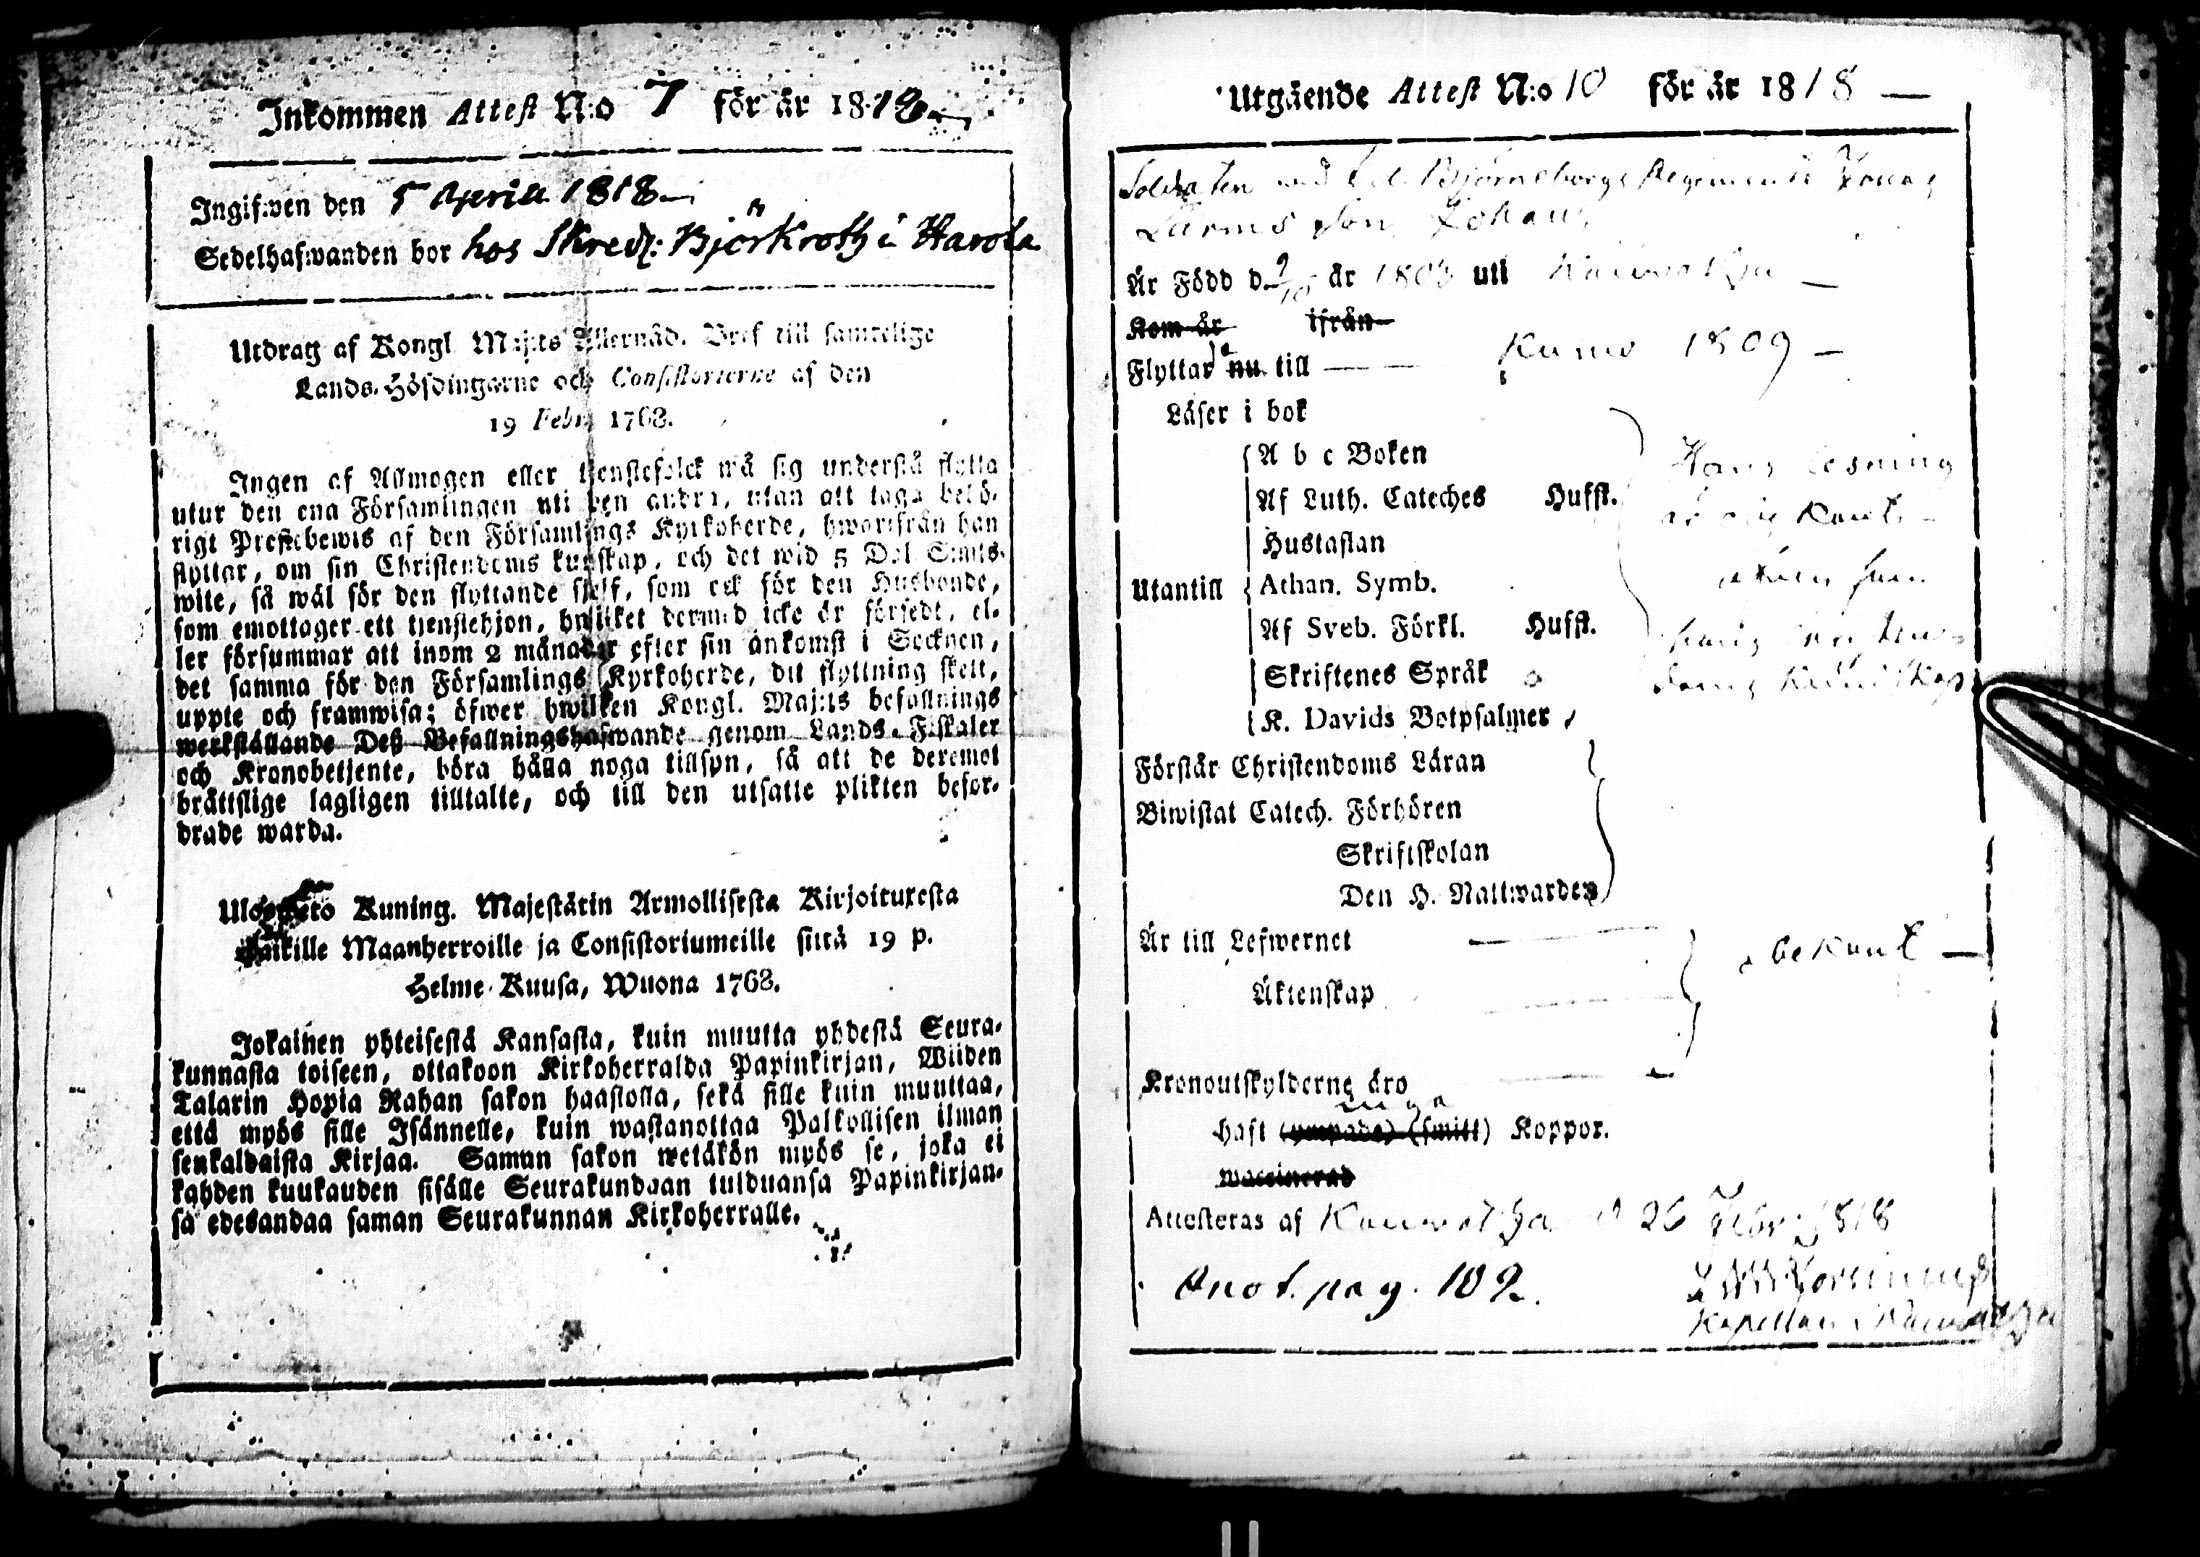 Inkommen Attest N:o 7 för år 1818
Ingifwen den 5 Aprill 1818
Sedelhafwanden bor hos Skredd: Björkroth i Harola
Utdrag af Kongl. Maj:ts Allernåd. Bref till samtelige
Lands-Höfdingarne och Consistorierne af den
19 Febr. 1768.
Ingen af Allmogen eller tjenstefolck må sig understå flytta
utur den ena Församlingen uti den andra, utan att taga behö-
rigt Prestebewis af den Församlings Kyrkoherde, hwarifrån han
flyttar, om sin Christendoms kunskap, och det wid 5 Dal. S:mts
wite, så wäl för den flyttande sjelf, som ock för den Husbonde,
som emottager ett tjenstehjon, hwilket dermed icke är försedt, el-
ler försummar att inom 2 månader efter sin ankomst i Socknen,
det samma för den Församlings Kyrkoherde, dit flyttning skett,
uppte och framwisa; öfwer hwilken Kongl. Maj:ts befallnings
werkställande Deß Befallningshafwande genom Lands-Fiskaler
och Kronobetjente, böra hålla noga tillsyn, så att de deremot
bråttslige lagligen tilltalte, och till den utsatte plikten befor-
drade warda.
Ulosweto Kuning. Majestätin Armollisesta Kirjoituxesta
Kaikille Maanherroille ja Consistoriumeille siitä 19 p.
Helme-Kuusa, Wuona 1768.
Jokainen yhteisestä Kansasta, kuin muutta yhdestä Seura-
kunnasta toiseen, ottakoon Kirkoherralda Papinkirjan, Wiiden
Talarin Hopia Rahan sakon haastolla, sekä sille kuin muuttaa,
että myös sille Isännelle, kuin wastanottaa Palkollisen ilman
senkaldaista Kirjaa. Saman sakon wetäkön myös se, joka ei
kahden kuukauden sisälle Seurakundaan tulduansa Papinkirjan-
sa edesandaa saman Seurakunnan Kirkoherralle.
Utgående Attest N:o 10 för år 1818
Soldaten wid Björneborgs Regemente
Larms Son Johan
Är Född d. 9/10 år 180 uti Kauwatza
Kom år ifrån
Flyttar nu till Kumo 1809
Läser i bok
A b c Boken
Af Luth. Cateches Hufst.
Hustaflan
Utantill Athan. Symb.
Af Sveb. Förkl. Hufst.
Skriftenes Språk
K. Davids Botpsalmer
Hans läsning
är ej känt
äfven som
hans Christen-
doms kundskap
Förstår Christendoms Läran
Biwistat Catech. Förhören
Skriftskolan
Den H. Nattwarden
Är till Lefwernet
obekant
Äktenskap
Kronoutskylderne äro
haft (ympade) (smitt) Koppor.
waccinerad
Attesteras af Kauwatza d 26 Febr. 1818
Anot. pag. 102.
Kapellan i Kauwatza